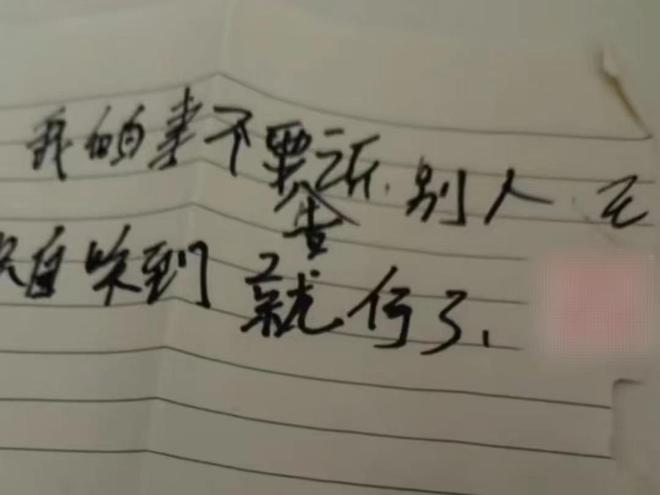 我的事不要告诉别人
自 到就行了.